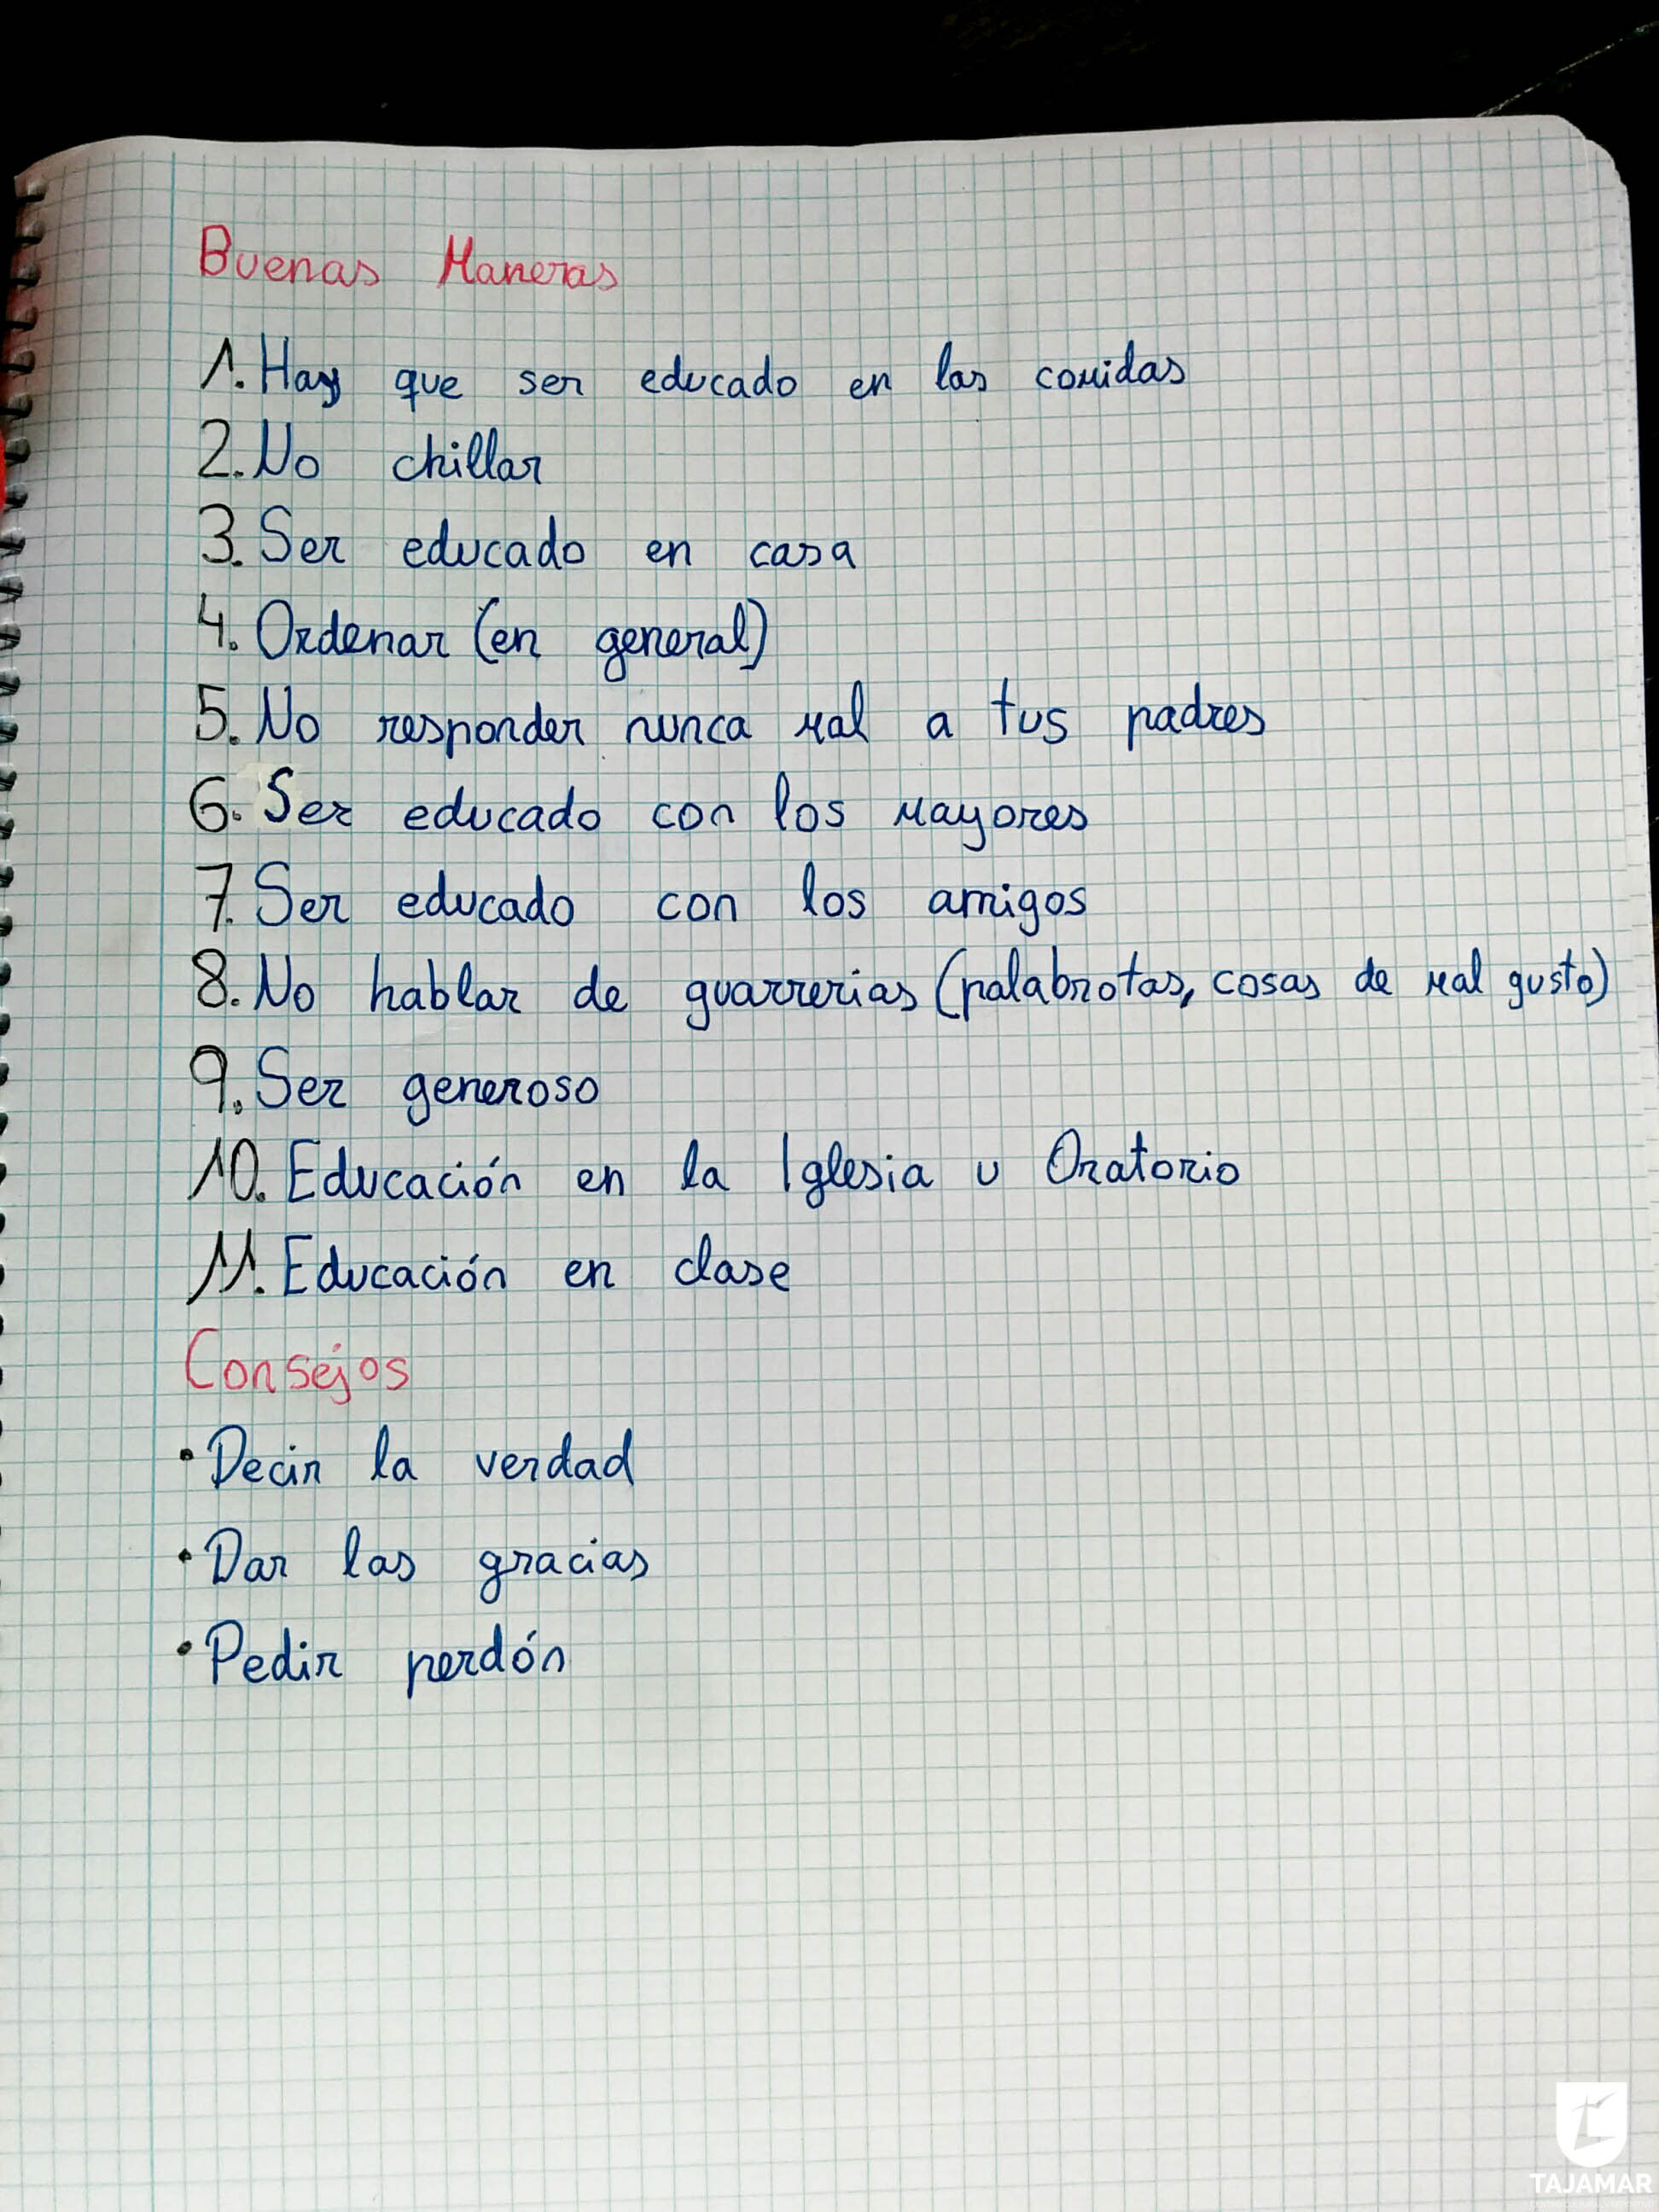 Buenas Maneras
1. Hay que ser educado en las comidas
2. No chillar
3. Ser educado en casa
4. Ordenar (en general)
5. No responder nunca mal a tus padres
6. Ser educado con los mayores
7. Ser educado con los amigos
8. No hablar de guarrerias (palabrotas, cosas de mal gusto)
9. Ser generoso
10. Educación en la Iglesia u Oratorio
11. Educación en clase
Consejos
• Decir la verdad
• Dar las gracias
• Pedir perdón
TAJAMAR